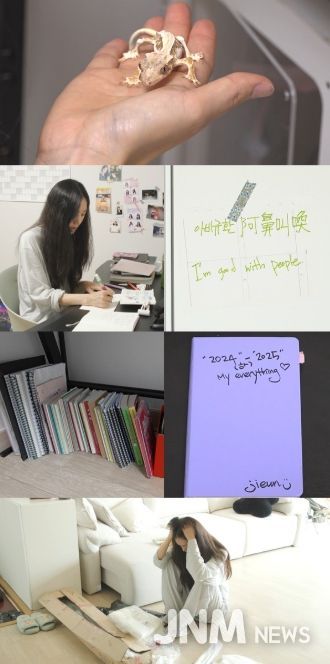 아비규환 阿鼻叫喚
I'm good with people.
"2024" - "2025"
My everything♡
jieun
JNM NEWS